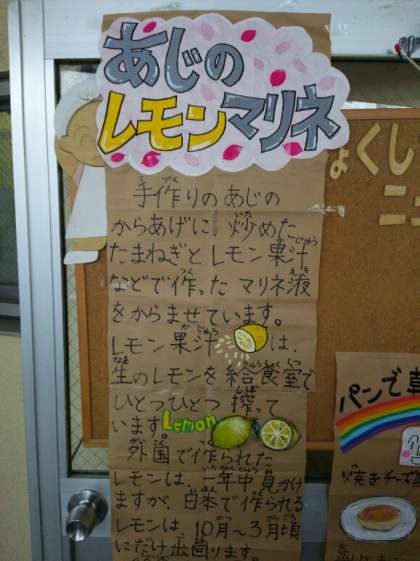 あじの
レモンマリネ
手作りのあじの
からあげに 炒めた
たまねぎとレモン果汁
などで作った マリネ液
をからませています。
レモン果汁は、
生のレモンを給食室で
ひとつひとつ 搾って
います Lemon
外国で作られた
レモンは、一年中見かけ
ますが、日本で作られる
レモンは、10月~3月頃
にだけ出回ります。
ょくし
パンで
焼きチーズ